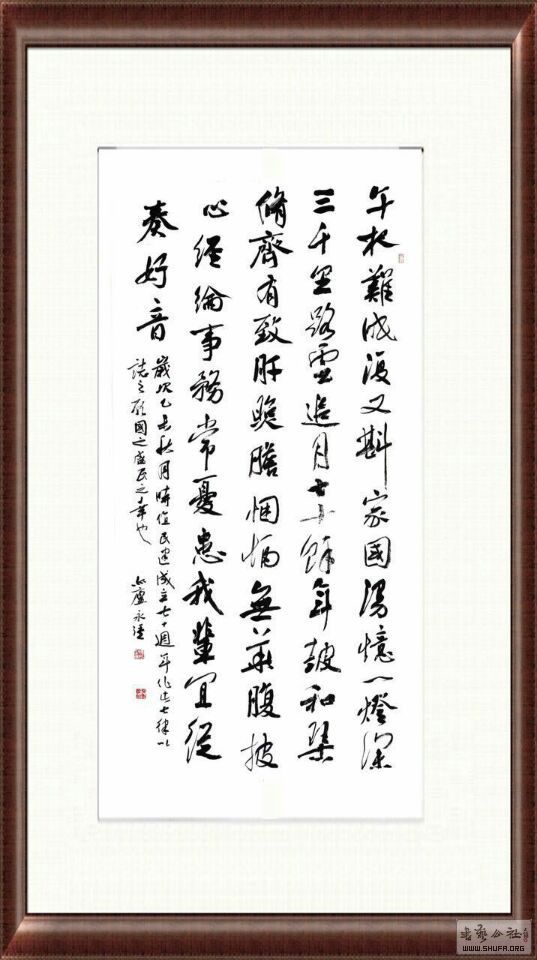 午難成復又斟家國憶一燈深
三千里路雲追月七十餘年皷和琴
脩齊有致肝膽悃愊無華腹披
心經綸事務常憂患我輩宜從
奏好音
歲次乙未秋月時值民建成立七十週年作此七律以
誌之願國之盛民之幸也 廬永
書藝公社
WWW.SHUFA.ORG